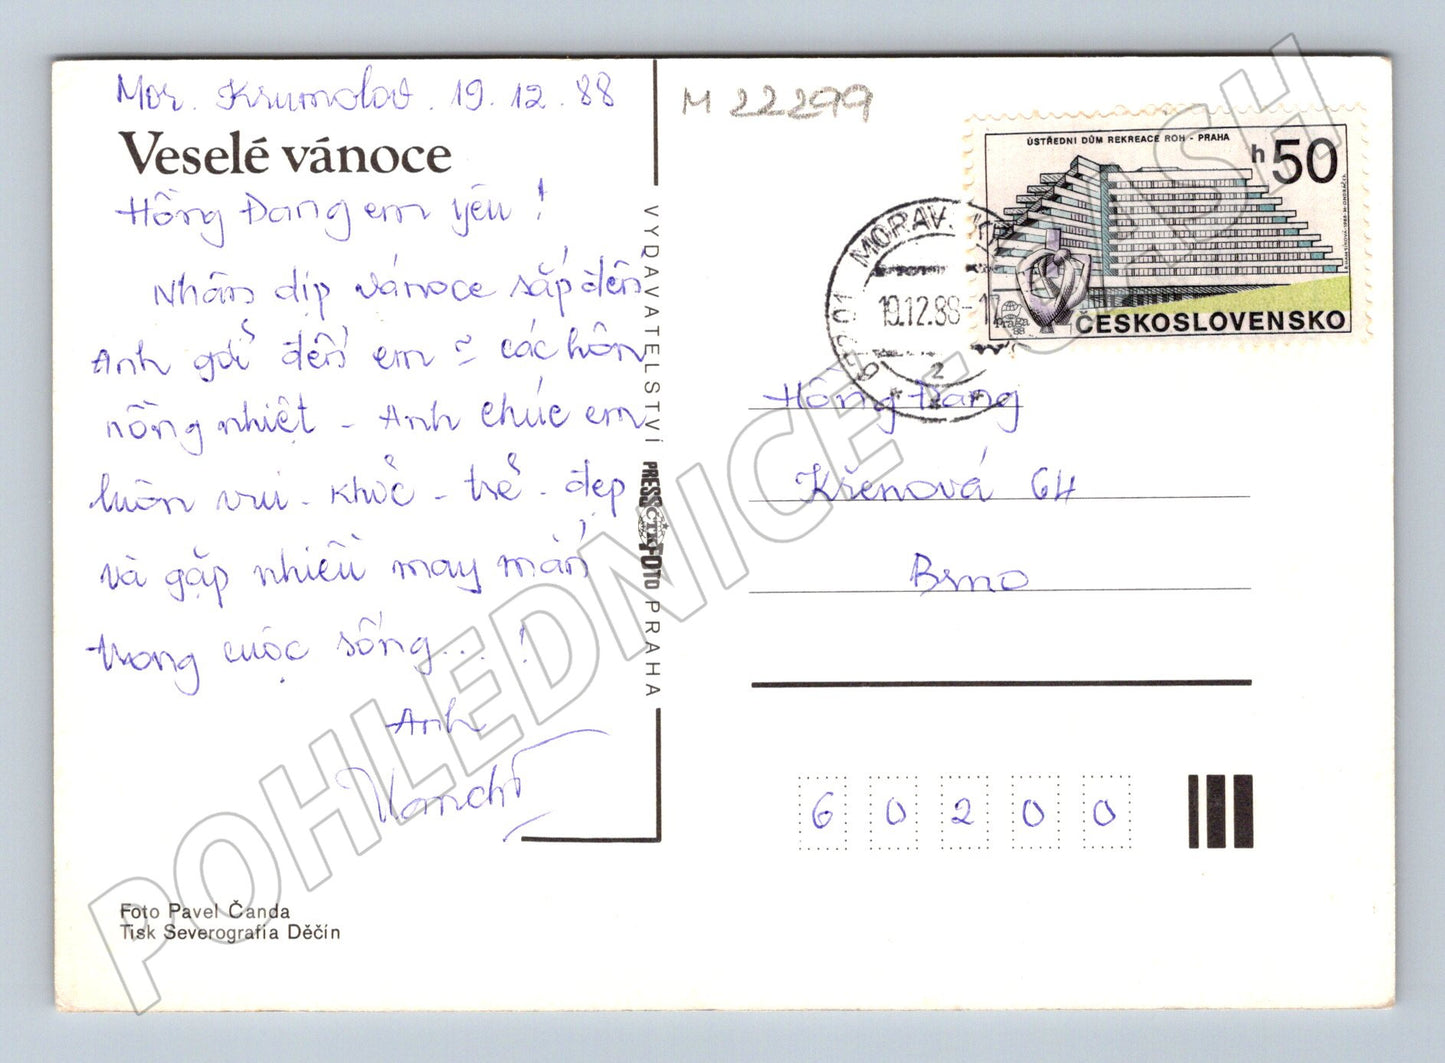 Mor. Krumolov. 19.12.88
Veselé vánoce
Hồng Đang em yêu!
Nhân dịp vánoce sắp đến
Anh gửi đến em = các hôn
nồng nhiệt - Anh chúc em
luôn vui - khoẻ - trẻ - đẹp
và gặp nhiều may mắn
trong cuộc sống...!
Anh
Foto Pavel Čanda
Tisk Severografia Děčín
VYDAVATELSTVÍ PRESSFOTO PRAHA
ČTK
M 22299
ÚSTŘEDNÍ DŮM REKREACE ROH - PRAHA
h 50
Praga
88
ČESKOSLOVENSKO
MORAV. KR
19.12.88-17
z
Hồng Đang
Křenová 64
Brno
60200
POHLEDNICE - CASH